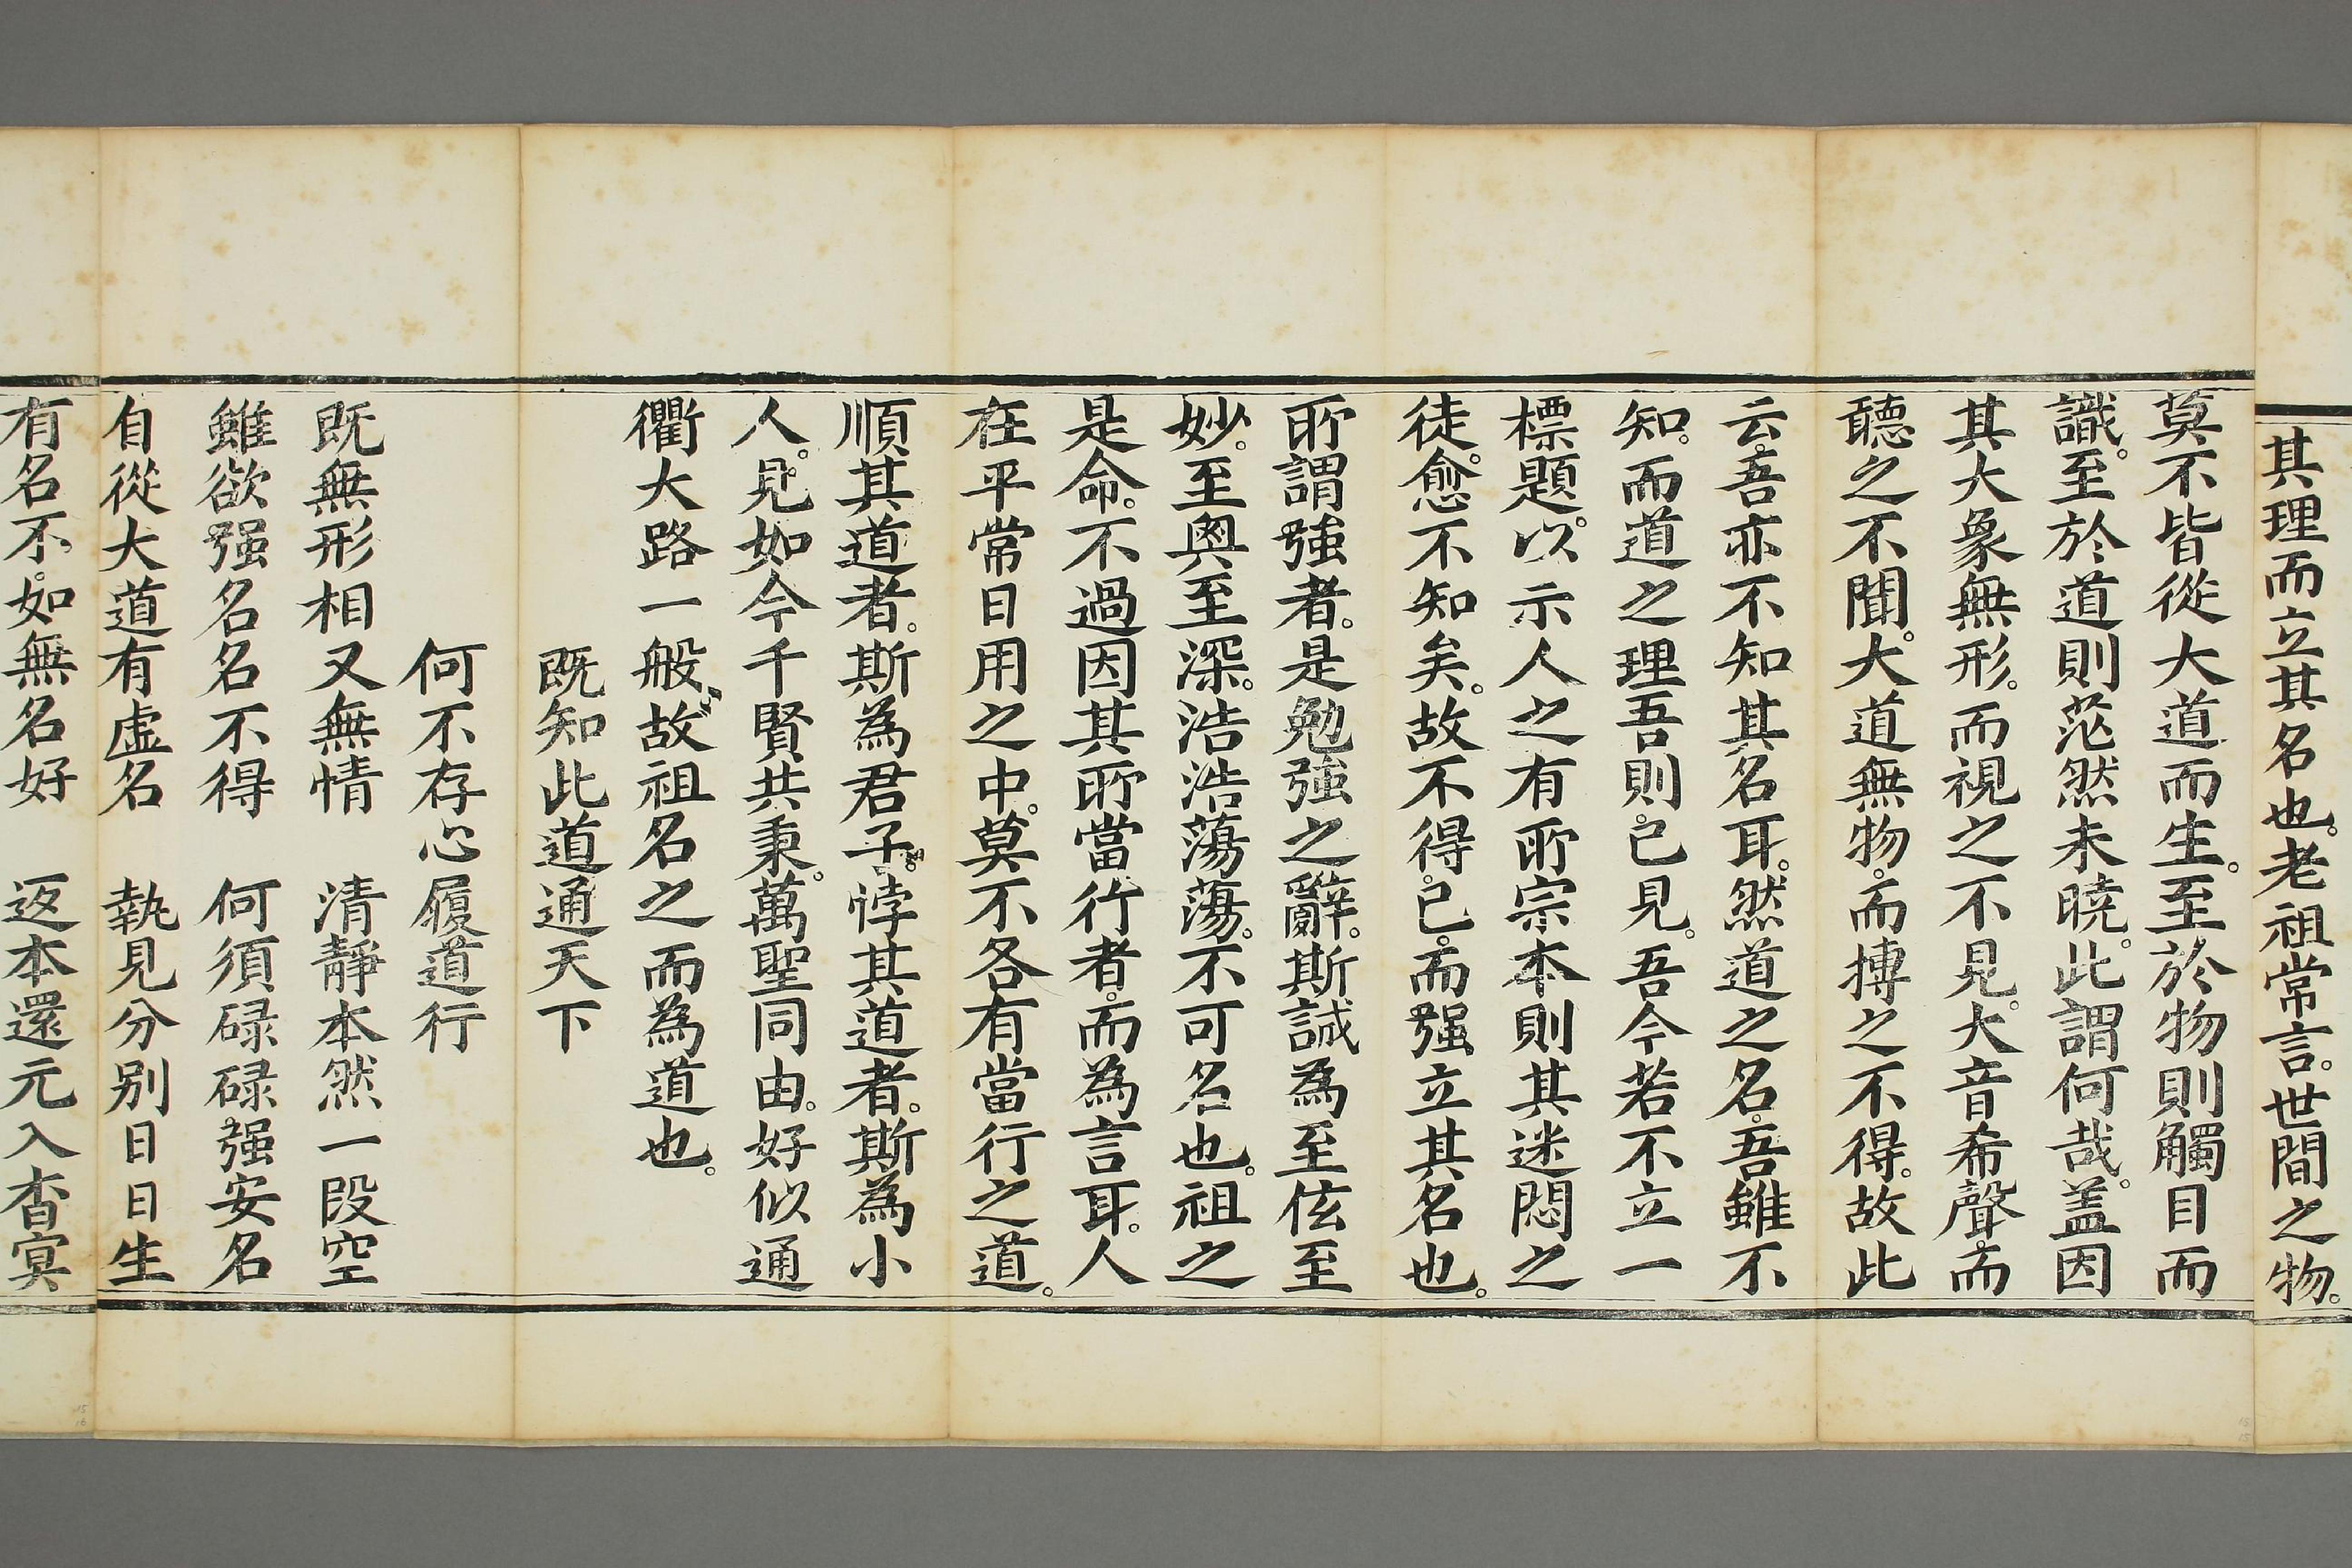 其理而立其名也。老祖常言。世間之物。
莫不皆從大道而生。至於物則觸目而
識。至於道則茫然未曉。此謂何哉。盖因
其大象無形。而視之不見。大音希聲。而
聽之不聞。大道無物。而摶之不得。故此
云。吾亦不知其名耳。然道之名。吾雖不
知。而道之理吾則已見。吾今若不立一
標題。以示人之有所宗本則其迷悶之
徒。愈不知矣。故不得已。而强立其名也。
所謂強者。是勉強之辭。斯誠為至佉至
妙。至奧至深。浩浩蕩蕩。不可名也。祖之
是命。不過因其所當行者。而為言耳。人
在平常日用之中。莫不各有當行之道。
順其道者。斯為君子。悖其道者。斯為小
人。見如今千賢共秉。萬聖同由。好似通
衢大路一般。故祖名之而為道也。
既知此道通天下
何不存心履道行
既無形相又無情　清靜本然一段空
雖欲强名名不得　何須碌碌强安名
自從大道有虛名　執見分別日日生
有名不如無名好　返本還元入杳寞